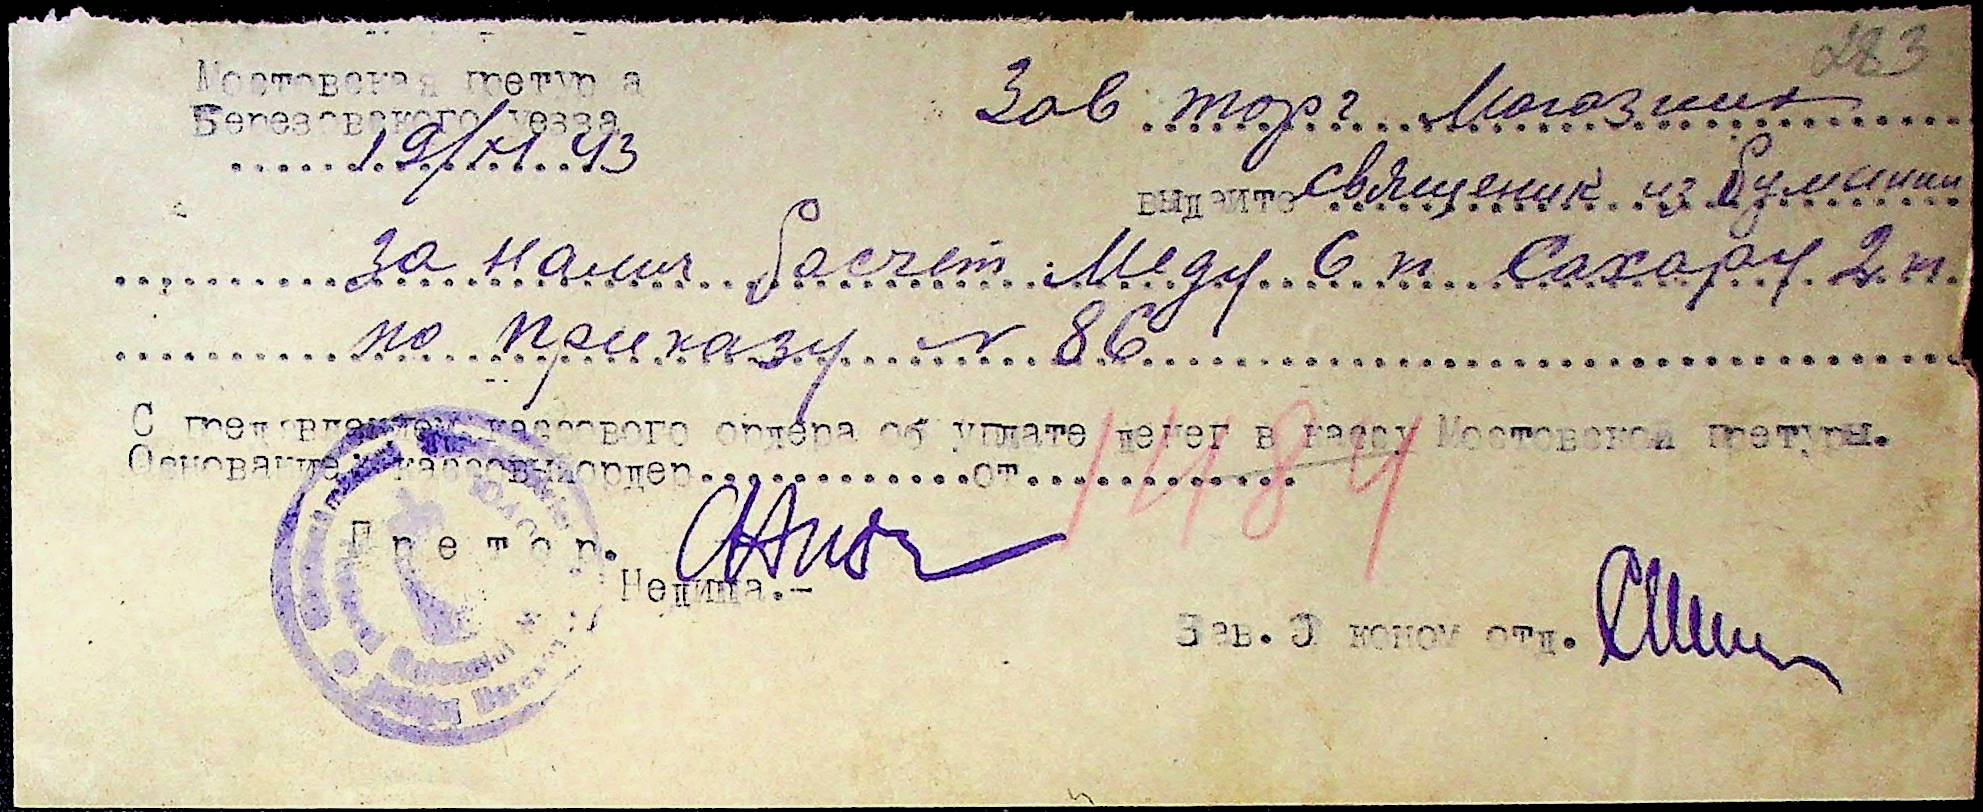 283
Мостовская претур а
Березовского уезда
19/XI 43
Зав торг Магазин
выдайте священик из Румынии
за налич расчет Меду 6 к Сахару 2 к
по приказу № 86
С пред'явлением кассового ордера об уплате денег в кассу Мостовской претуры.
Основание: кассовый ордер............от.............
1484
П р е т о р.
Нелипа.-
Зав. Э коном отд.